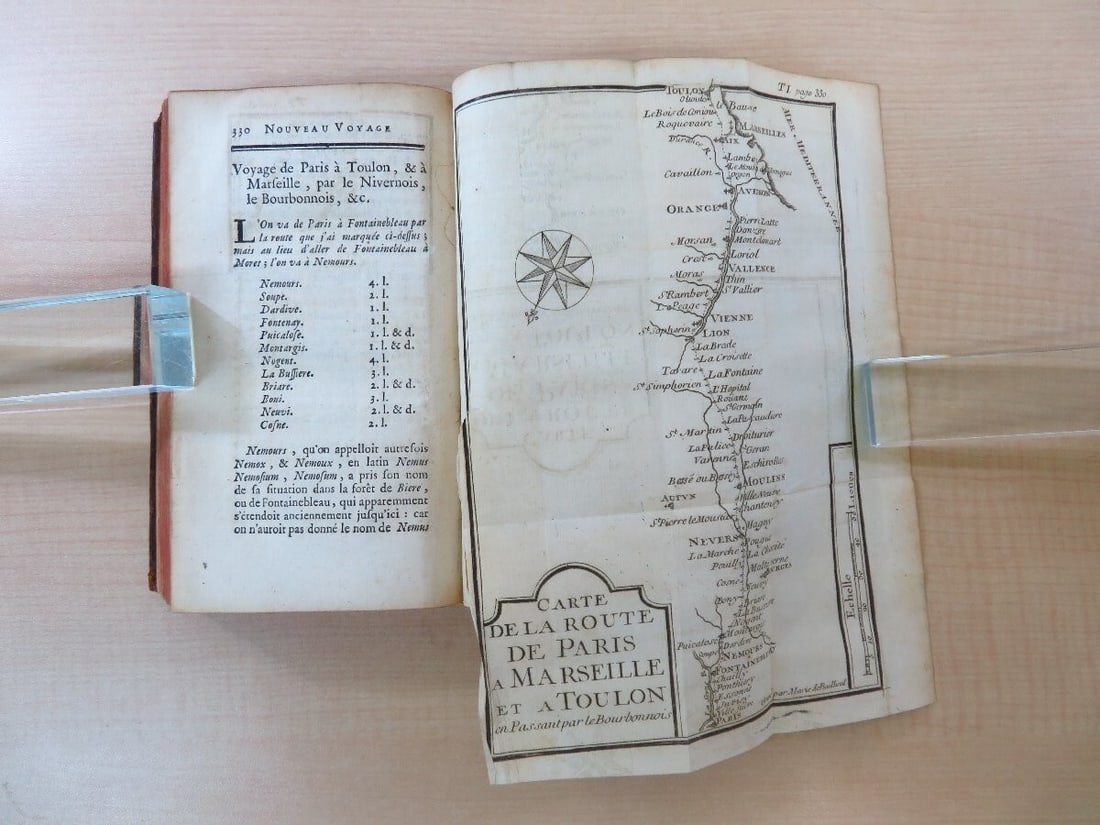 330 NOUVEAU VOYAGE
Voyage de Paris à Toulon, & à
Marseille, par le Nivernois,
le Bourbonnois, &c.
L'On va de Paris à Fontainebleau par
la route que j'ai marquée ci-dessus;
mais au lieu d'aller de Fontainebleau à
Moret; l'on va à Nemours.
Nemours. 4. l.
Soupe. 2. l.
Dardive. 1. l.
Fontenay. 1. l.
Puicalose. 1. l. & d.
Montargis. 1. l. & d.
Nogent. 4. l.
La Bussiere. 3. l.
Briare. 2. l. & d.
Boni. 3. l.
Neuvi. 2. l. & d.
Cosne. 2. l.
Nemours, qu'on appelloit autrefois
Nemox, & Nemoux, en latin Nemus
Nemosium, Nemosum, a pris son nom
de sa situation dans la forêt de Biere,
ou de Fontainebleau, qui apparemment
s'étendoit anciennement jusqu'ici: car
on n'auroit pas donné le nom de Nemus
T I page 330
TOULON
le Bausse
Roquevaire
MARSEILLES
MER MEDITERRANNEE
Durance R.
AIX
Lambe
Cavaillon
Orgon
AVEIGN
ORANGE
Pierrlatte
Donzere
Morsan
Montelimart
Crest
Loriol
VALLENCE
Moras
Thin
St Vallier
St Rambert
Peage
VIENNE
St Saphorin
LION
La Brade
La Croisette
Tarare
La Fontaine
St Simphorien
L'Hopital
Roüane
St Germain
La Pacaudiere
St Martin
Donturier
La Palice
St Geran
Varenne
Eschirolles
Bessé ou Bessay
MOULINS
AUTUN
Ville Neuve
Chantenay
St Pierre le Moustier
Magny
NEVERS
Pougue
La Marche
La Charité
Pouilly
Cosne
Bony
La Bussiere
Nogent
Montargis
Puicalose
Dardive
NEMOURS
FONTAINEBLEAU
Chailly
Ponthiery
Essonne
Ville Juive
PARIS
CARTE
DE LA ROUTE
DE PARIS
A MARSEILLE
ET A TOULON
en Passant par le Bourbonnois
Echelle
Lieues
par Marie de Bailleul